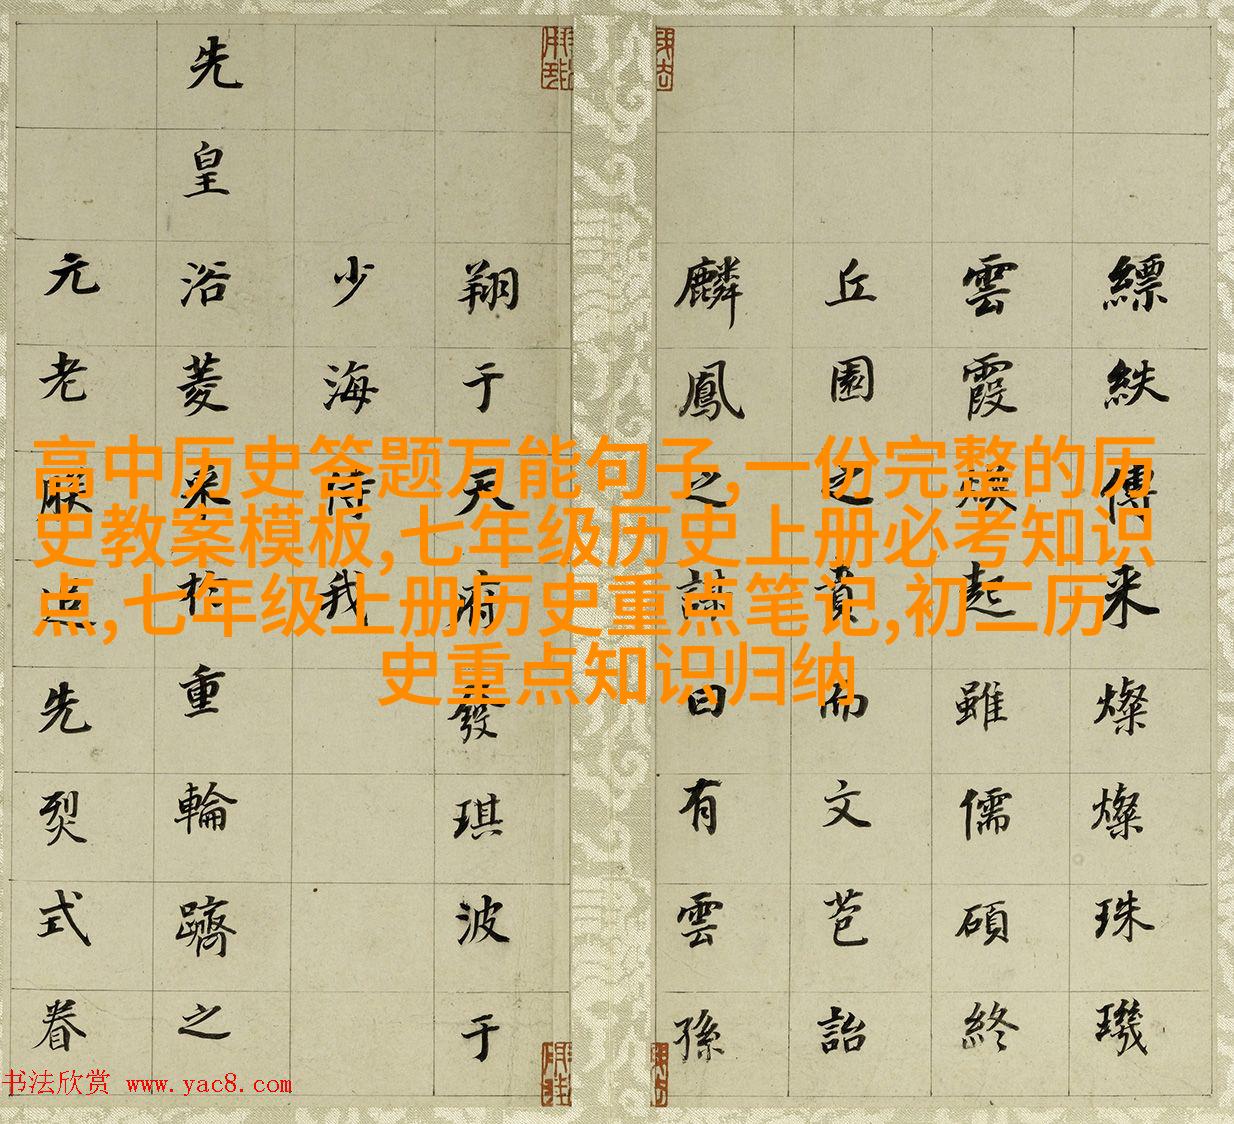 高中历史答题万能句子,一份完整的历
史教案模板,七年级历史上册必考知识
点,七年级上册历史重点笔记,初二历
史重点知识归纳
縹紩傳来燦燦珠璣
雲霞煥起雖儒碩終
丘園之賁而文芭詒
麟鳳之謀曰有雲孫
翔于天發琪波于
少海待我
先皇浴菱采於重輪躋之
元老先烈式眷
书法欣赏 www.yac8.com